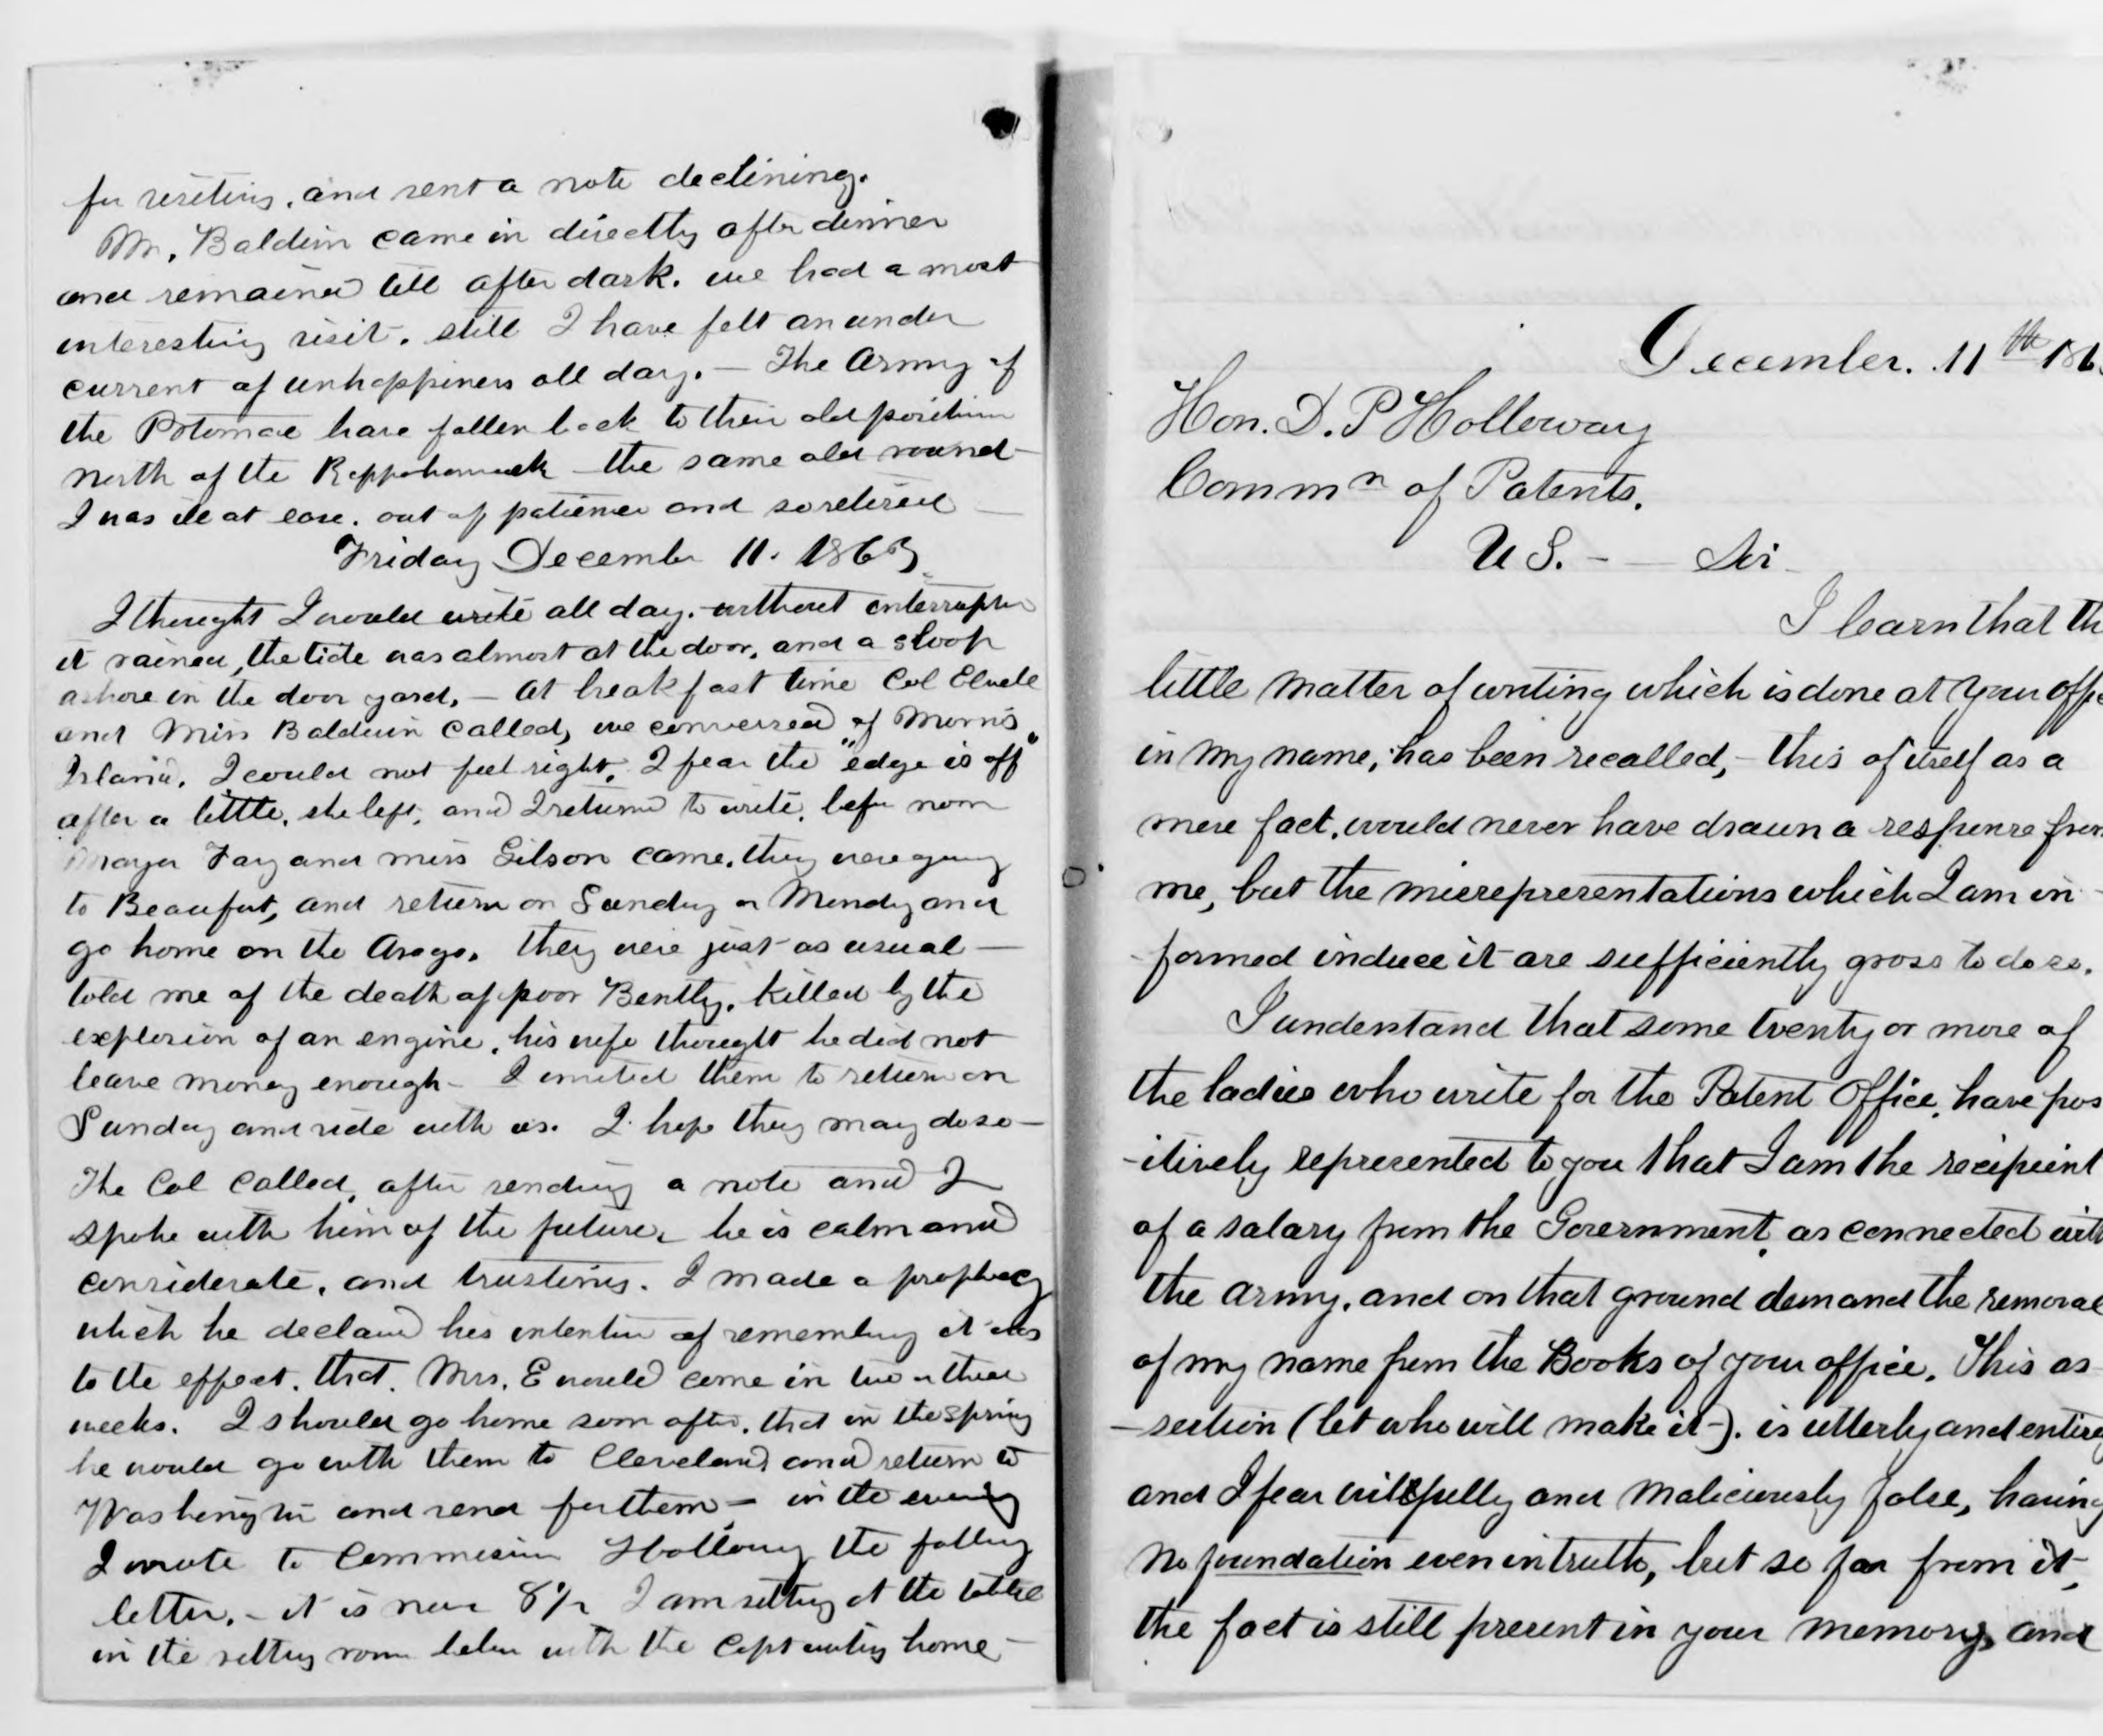 for visiting, and sent a note declining.
Mr. Baldwin came in directly after dinner
and remained till after dark. we had a most
interesting visit. still I have felt an under
current of unhappiness all day. — The Army of
the Potomac have fallen back to their old position
north of the Rappahannock — the same old round —
I was ill at ease. out of patience and so retired —
Friday December 11. 1863
I thought I would write all day. without interruption
it rained, the tide was almost at the door, and a sloop
ashore in the door yard. — At breakfast time Col Elwell
and Miss Baldwin called, we conversed of Morris
Island. I could not feel right. I fear the "edge is off"
after a little, she left, and I returned to write. before noon
Mayor Fay and miss Gilson came. they were going
to Beaufort, and return on Sunday or Monday and
go home on the Arago. they were just as usual —
told me of the death of poor Bently. killed by the
explosion of an engine. his wife thought he did not
leave money enough — I invited them to return on
Sunday and ride with us. I hope they may do so —
The Col called, after sending a note and I
spoke with him of the future. he is calm and
considerate, and trusting. I made a prophecy
which he declared his intention of remembering it was
to the effect. that. Mrs. E would come in two or three
weeks. I should go home soon after. that in the spring
he would go with them to Cleveland and return to
Washington and send for them — in the evening
I wrote to Commissioner Holloway the following
letter. — it is now 8½ I am sitting at the table
in the sitting room below with the Capt writing home —
December. 11th 186
Hon. D. P Holloway
Commn of Patents.
U S. — — Sir
I learn that th
little matter of writing which is done at your offi
in my name, has been recalled, — this of itself as a
mere fact, would never have drawn a response from
me, but the misrepresentations which I am in
-formed induce it are sufficiently gross to do so.
I understand that some twenty or more of
the ladies who write for the Patent Office, have pos
-itively represented to you that I am the recipient
of a salary from the Government, as connected with
the army, and on that ground demand the removal
of my name from the Books of your office. This as
-sertion (let who will make it —). is utterly and entirely
and I fear willfully and maliciously false, having
no foundation even in truth, but so far from it,
the fact is still present in your memory, and